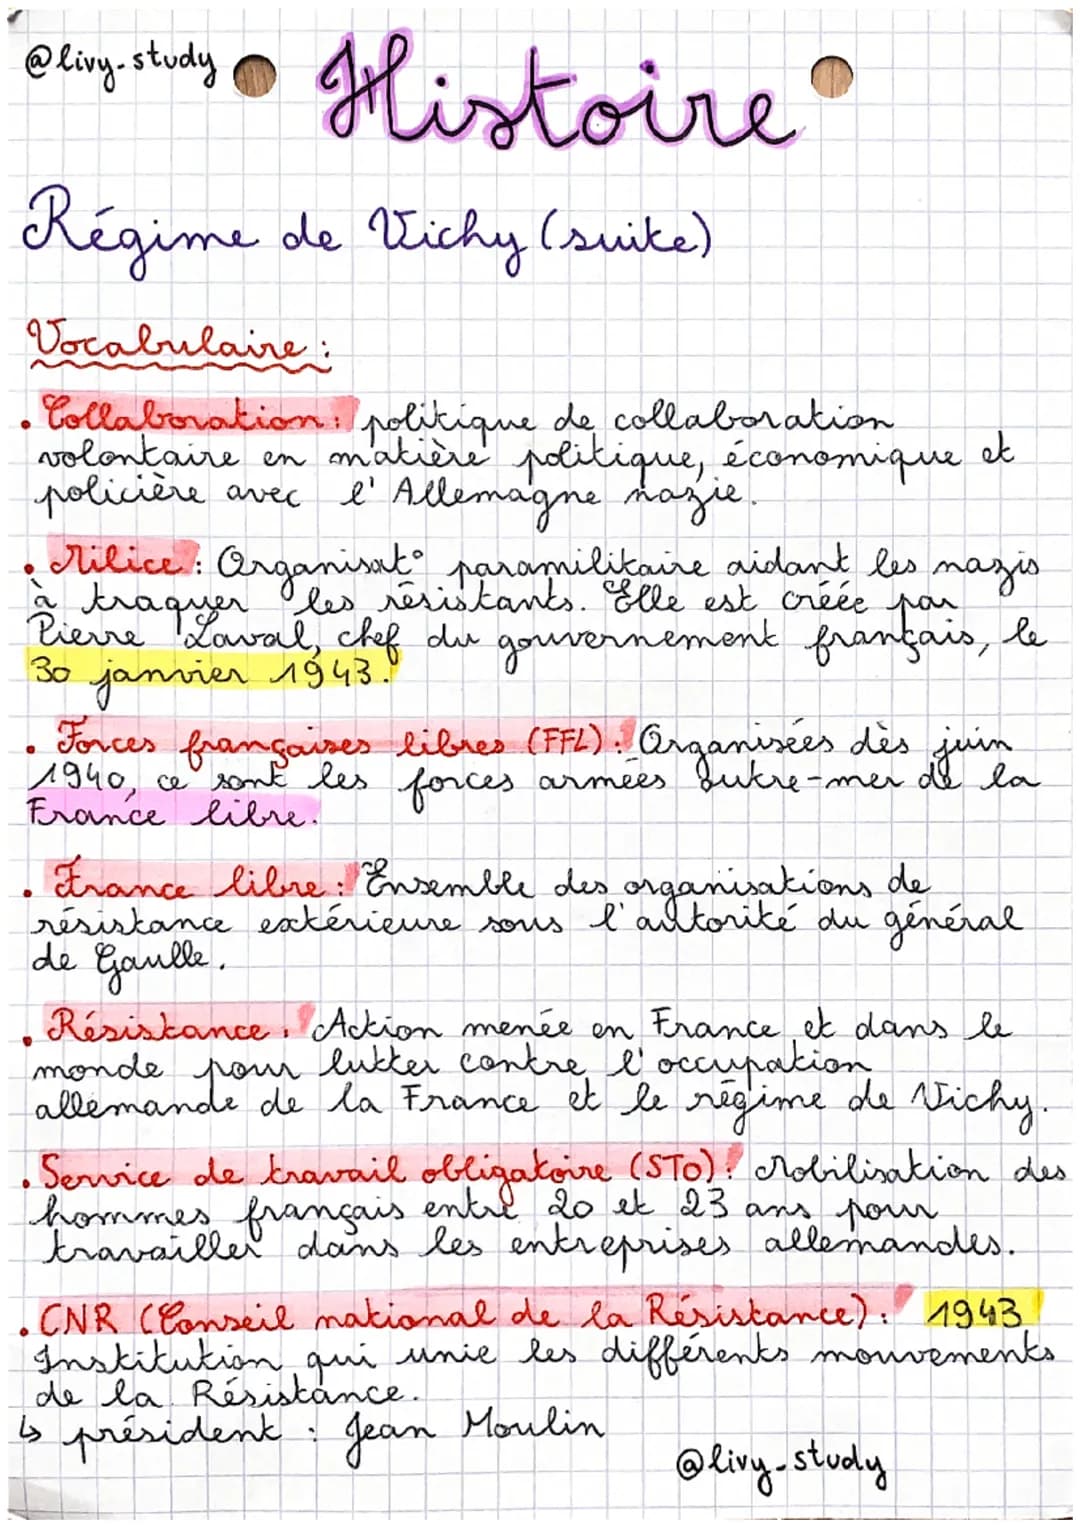 @livy-study
Histoire
Régime de Vichy (suite)
Vocabulaire :
. Collaboration : politique de collaboration
volontaire en matière politique, économique et
policière avec l'Allemagne nazie.
. Milice : Organisat° paramilitaire aidant les nazis
à traquer les résistants. Elle est créée par
Pierre Laval, chef du gouvernement français, le
30 janvier 1943.
. Forces françaises libres (FFL) : Organisées dès juin
1940, ce sont les forces armées outre-mer de la
France libre.
. France libre : Ensemble des organisations de
résistance extérieure sous l'autorité du général
de Gaulle.
. Résistance : Action menée en France et dans le
monde pour lutter contre l'occupation
allemande de la France et le régime de Vichy.
. Service de travail obligatoire (STO) : Mobilisation des
hommes français entre 20 et 23 ans pour
travailler dans les entreprises allemandes.
. CNR (Conseil national de la Résistance) : 1943
Institution qui unie les différents mouvements
de la Résistance.
↳ président : Jean Moulin
@livy-study